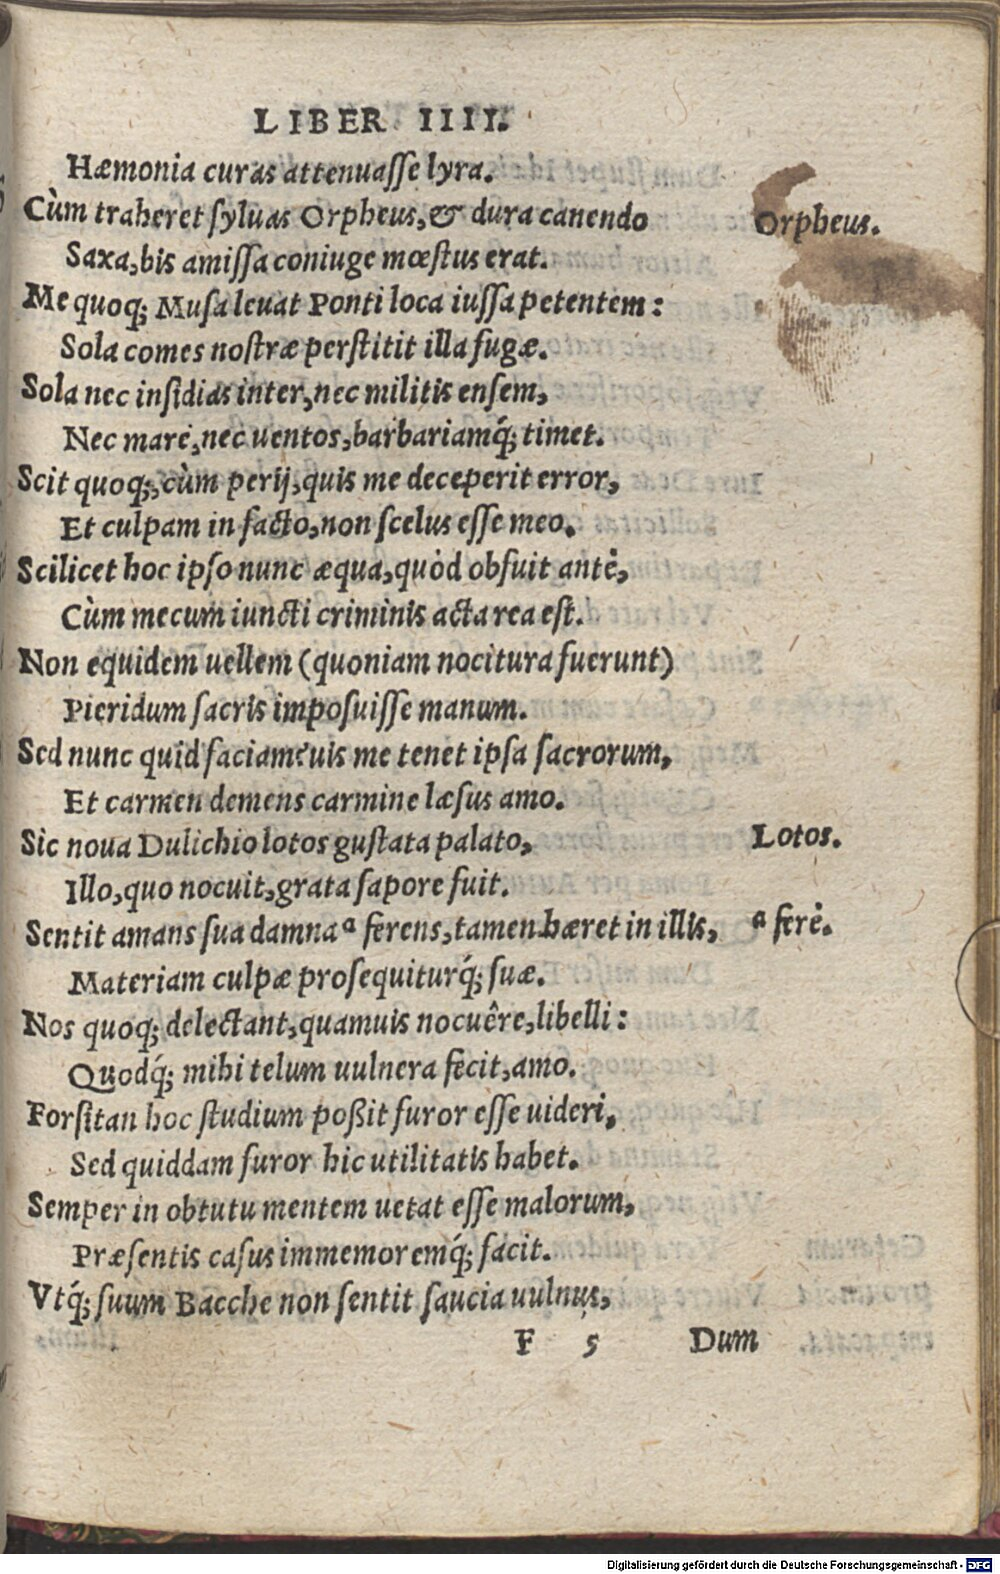 LIBER IIII.
Hæmonia curas attenuaſſe lyra.
Cùm traheret ſyluas Orpheus, & dura canendo Orpheus.
Saxa, bis amiſſa coniuge mœſtus erat.
Me quoq; Muſa leuat Ponti loca iuſſa petentem:
Sola comes noſtræ perſtitit illa fugæ.
Sola nec inſidias inter, nec militis enſem,
Nec mare, nec uentos, barbariamq́; timet.
Scit quoq;, cùm perij, quis me deceperit error,
Et culpam in facto, non ſcelus eſſe meo.
Scilicet hoc ipſo nunc æqua, quòd obfuit antè,
Cùm mecum iuncti criminis acta rea eſt.
Non equidem uellem (quoniam nocitura fuerunt)
Pieridum ſacris impoſuiſſe manum.
Sed nunc quid faciam? uis me tenet ipſa ſacrorum,
Et carmen demens carmine læſus amo.
Sic noua Dulichio lotos guſtata palato, Lotos.
Illo, quo nocuit, grata ſapore fuit.
Sentit amans ſua damna ᵃ ferens, tamen hæret in illis, ᵃ ferè.
Materiam culpæ proſequiturq́; ſuæ.
Nos quoq; delectant, quamuis nocuêre, libelli:
Quodq́; mihi telum uulnera fecit, amo.
Forſitan hoc ſtudium poßit furor eſſe uideri,
Sed quiddam furor hic utilitatis habet.
Semper in obtutu mentem uetat eſſe malorum,
Præſentis caſus immemoremq́; facit.
Vtq́; ſuum Bacche non ſentit ſaucia uulnus,
F 5 Dum
Digitalisierung gefördert durch die Deutsche Forschungsgemeinschaft - DFG